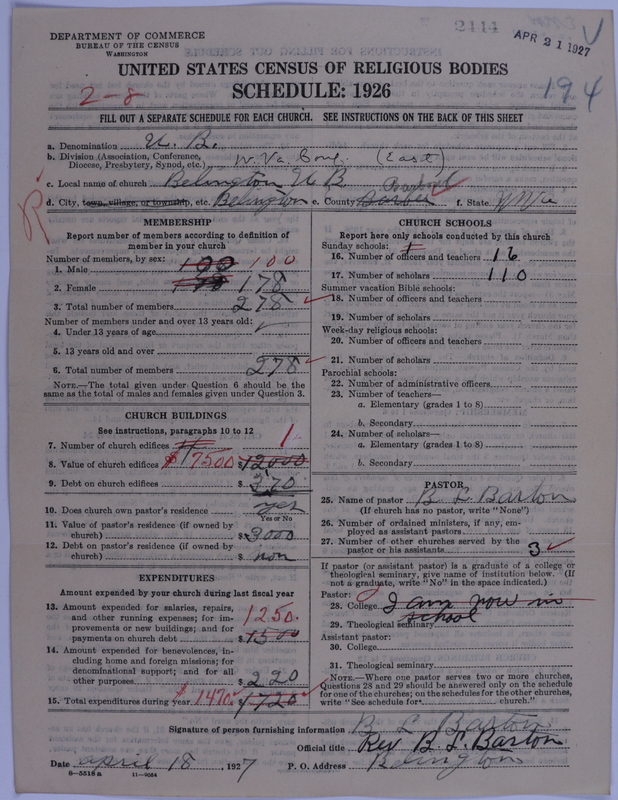 2444
APR 21 1927
DEPARTMENT OF COMMERCE
BUREAU OF THE CENSUS
WASHINGTON
UNITED STATES CENSUS OF RELIGIOUS BODIES
SCHEDULE: 1926
2-8
194
FILL OUT A SEPARATE SCHEDULE FOR EACH CHURCH. SEE INSTRUCTIONS ON THE BACK OF THIS SHEET
a. Denomination U. B.
b. Division (Association, Conference, Diocese, Presbytery, Synod, etc.) W. Va. Conf. (East)
c. Local name of church Belington U B
d. City, town, village, or township, etc. Belington e. County Barbour f. State W Va
MEMBERSHIP
Report number of members according to definition of
member in your church
Number of members, by sex:
1. Male 100 100
2. Female 178 178
3. Total number of members 278
Number of members under and over 13 years old:
4. Under 13 years of age
5. 13 years old and over
6. Total number of members 278
NOTE.—The total given under Question 6 should be
same as the total of males and females given under Question 3.
CHURCH BUILDINGS
See instructions, paragraphs 10 to 12
7. Number of church edifices 1
8. Value of church edifices $17500 $12000
9. Debt on church edifices $370
10. Does church own pastor's residence yes
Yes or No
11. Value of pastor's residence (if owned by
church) $3000
12. Debt on pastor's residence (if owned by
church) $non
EXPENDITURES
Amount expended by your church during last fiscal year
13. Amount expended for salaries, repairs,
and other running expenses; for im-
provements or new buildings; and for
payments on church debt 1250. $1500
14. Amount expended for benevolences, in-
cluding home and foreign missions; for
denominational support; and for all
other purposes $220
15. Total expenditures during year $1470 $1720
CHURCH SCHOOLS
Report here only schools conducted by this church
Sunday schools: 1
16. Number of officers and teachers 16
17. Number of scholars 110
Summer vacation Bible schools:
18. Number of officers and teachers
19. Number of scholars
Week-day religious schools:
20. Number of officers and teachers
21. Number of scholars
Parochial schools:
22. Number of administrative officers
23. Number of teachers—
a. Elementary (grades 1 to 8)
b. Secondary
24. Number of scholars—
a. Elementary (grades 1 to 8)
b. Secondary
PASTOR
25. Name of pastor B L Barton
(If church has no pastor, write "None")
26. Number of ordained ministers, if any, em-
ployed as assistant pastors
27. Number of other churches served by the
pastor or his assistants 3
If pastor (or assistant pastor) is a graduate of a college or
theological seminary, give name of institution below. (If
not a graduate, write "No" in the space indicated.)
Pastor:
28. College I am now in
29. Theological seminary school
Assistant pastor:
30. College
31. Theological seminary
NOTE.—Where one pastor serves two or more churches,
Questions 28 and 29 should be answered only on the schedule
for one of the churches; on the schedules for the other churches,
write "See schedule for church."
Signature of person furnishing information B L Barton
Official title Rev B. L. Barton
Date april 18, 1927 P. O. Address Belington
8—5518 a 11—9084